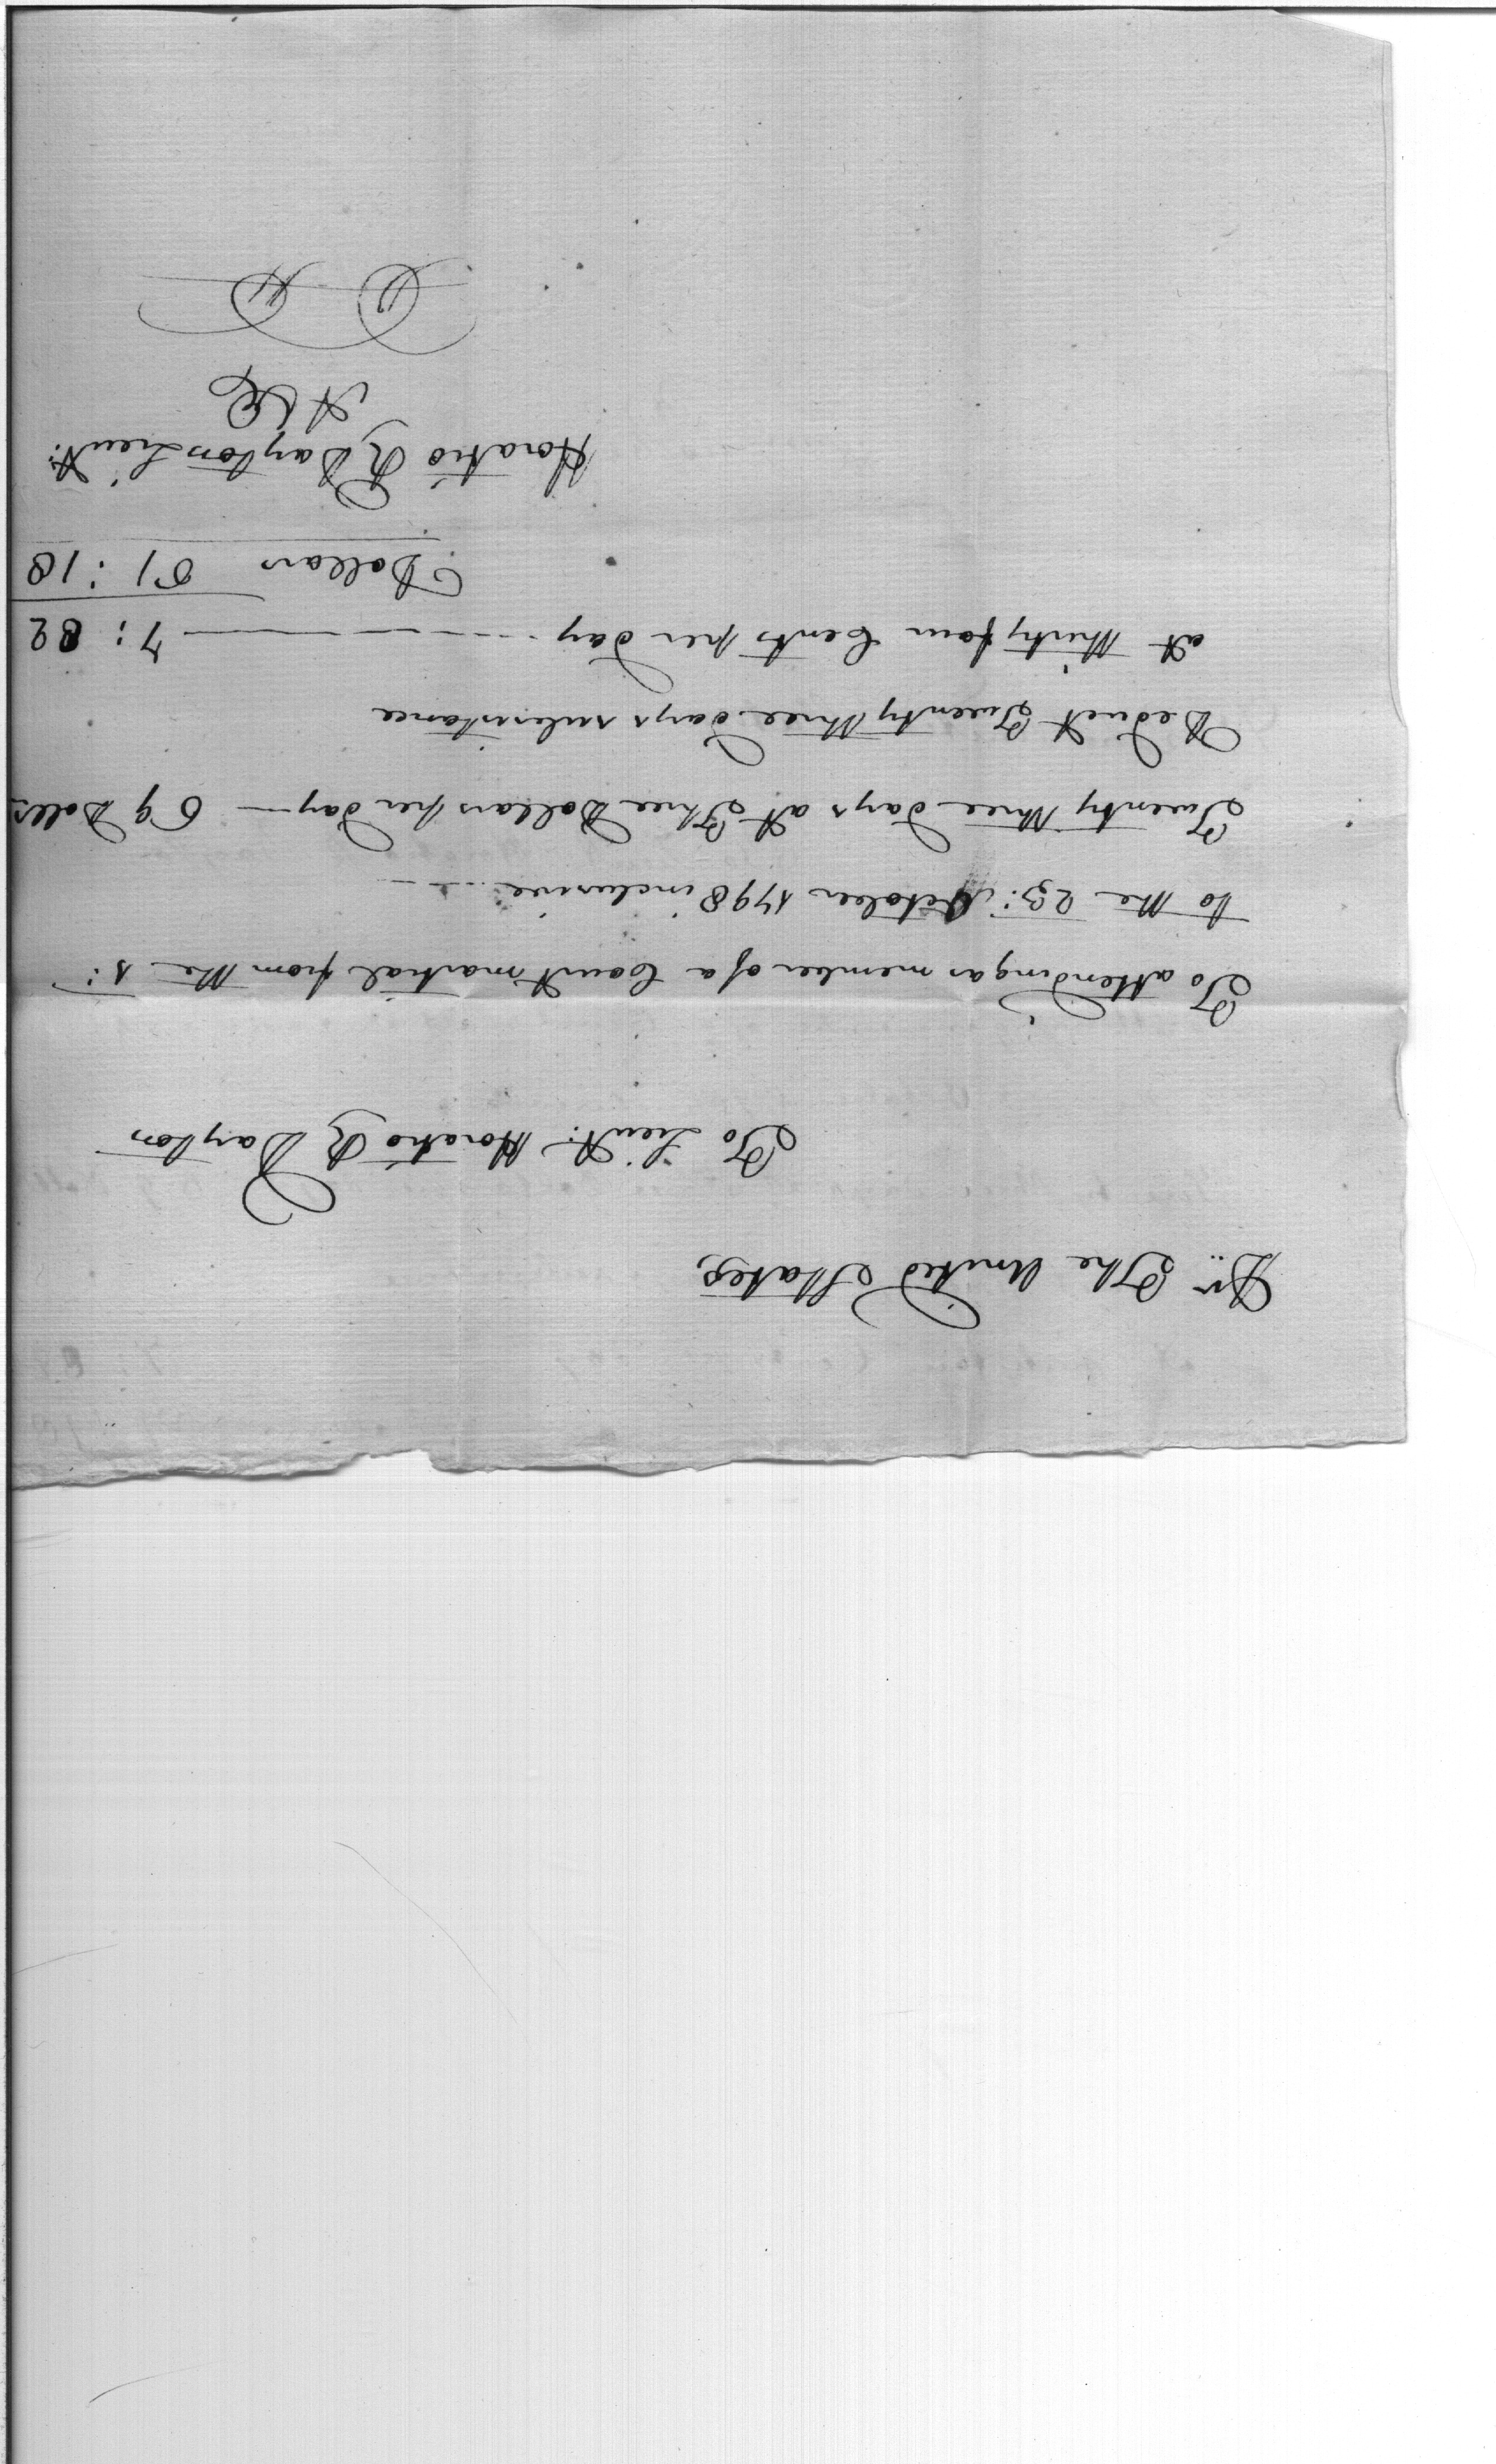 Dr. The United States,
To Lieut: Horatio R Dayton
To attending as member of a Court martial from the 1:
to the 23: October 1798 inclusive
Twenty three days at Three Dollars per day — 69 Dolls
Deduct Twenty three days subsistance
at thirty four Cents per day — 7:82
Dollars 61:18
Horatio R Dayton Lieut: